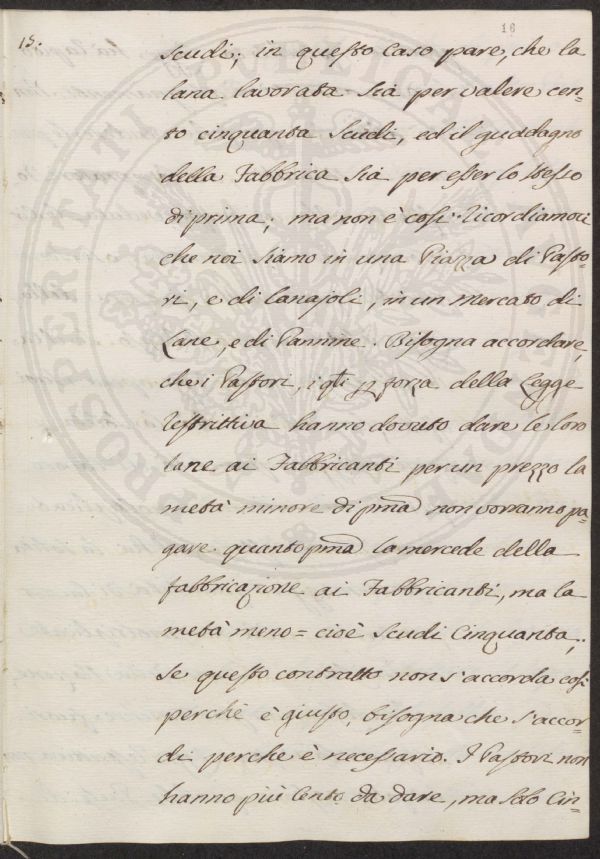 15.
16
scudi; in questo caso pare, che la
lana lavorata sia per valere cen=
to cinquanta scudi, ed il guadagno
della Fabbrica sia per esser lo stesso
di prima; ma non è così. Ricordiamoci
che noi siamo in una Piazza di Pasto=
ri, e di lanajoli, in un mercato di
Lane, e di Pannine. Bisogna accordare,
che i Pastori, i qti p forza della Legge
restrittiva hanno dovuto dare le loro
lane ai Fabbricanti per un prezzo la
metà minore di pma non vorranno pa=
gare quanto pma la mercede della
fabbricazione ai Fabbricanti, ma la
metà meno = cioè scudi Cinquanta;
se questo contratto non s'accorda così
perchè è giusto, bisogna che s'accor=
di perche è necessario. I Pastori non
hanno più Cento da dare, ma solo Cin=
PROSPERITATI PUBLICAE AUGENDAE